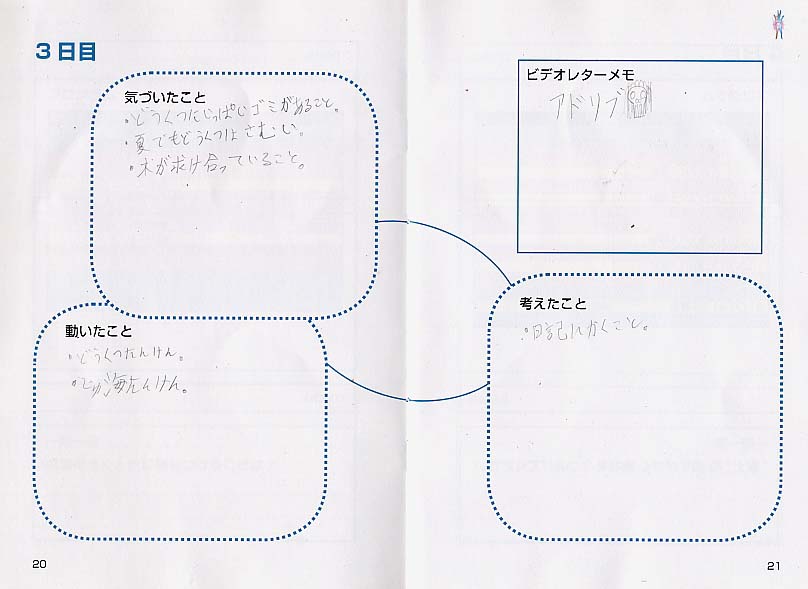 3日目
気づいたこと
・どうくつにいっぱいゴミがあること。
・夏でもどうくつはさむい。
・木が求け合っていること。
動いたこと
・どうくつたんけん。
・じゅ海たんけん。
20
ビデオレターメモ
アドリブ
考えたこと
・日記にかくこと。
21